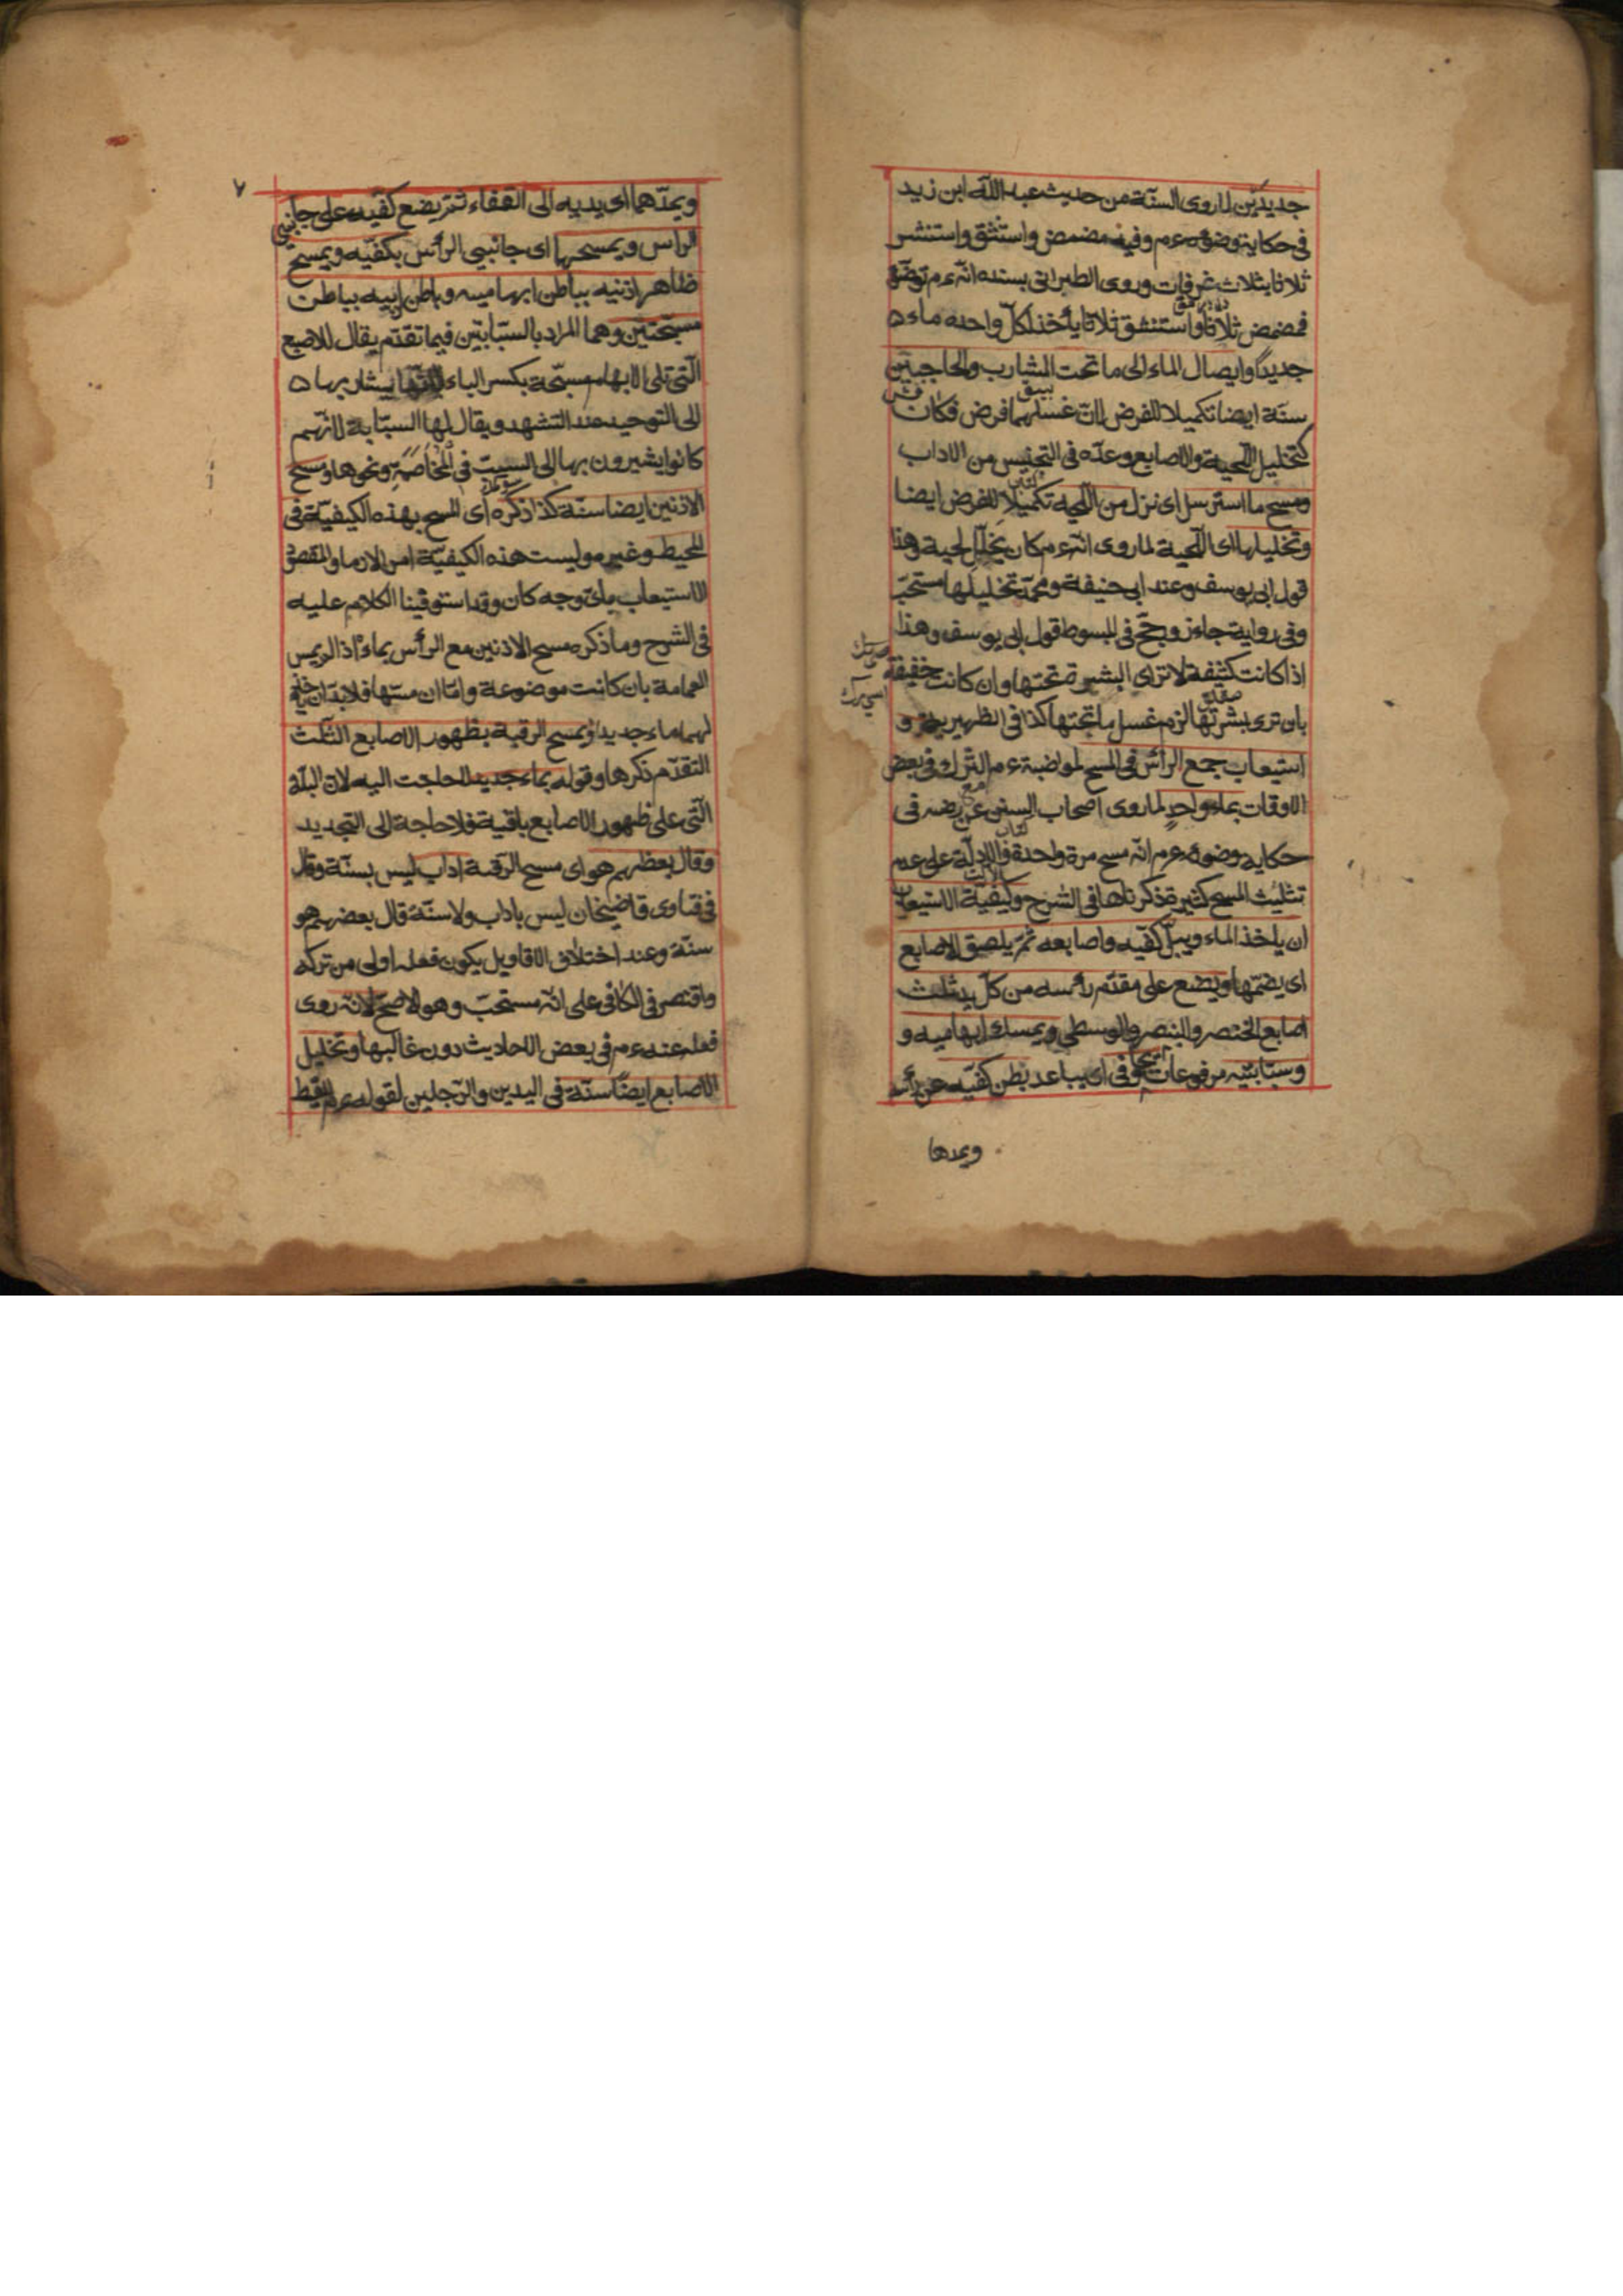 جديدين لما روى السنة من حديث عبد الله ابن زيد
فى حكاية وضوئه عم وفيه فمضمض واستنشق واستنشر
ثلاثا بثلاث غرفات وروى الطبرانى بسنده انه عم توضأ
فمضمض ثلاثا واستنشق ثلاثا يأخذ لكل واحدة ماء
جديدا وايصال الماء الى ما تحت الشارب والحاجبين
سنة ايضا تكميلا للفرض لان غسلهما فرض فكان
كتخليل اللحية والاصابع وعده فى التجنيس من الاداب
ومسح ما استرسل اى نزل من اللحية تكميلا للفرض ايضا
وتخليلها اى اللحية لما روى انه عم كان يخلل لحية وهذا
قول ابى يوسف وعند ابى حنيفة ومحمد تخليلها مستحب
وفى رواية جاءز ورجح فى المبسوط قول ابى يوسف وهذا
اذا كانت كثيفة لا ترى البشرة تحتها وان كانت خفيفة
بان ترى بشرتها لزم غسل ما تحتها كذا فى الظهيرية و
استيعاب جمع الرأس فى المسح لمواضبة عم الترك فى بعض
الاوقات بماء واحد لما روى اصحاب السنن عن رضه فى
حكاية وضوءه عم انه مسح مرة واحدة والادلة على عدم
تثليث المسح كثيرة ذكرناها فى الشرح وكيفية الاستيعاب
ان ياخذ الماء ويبل كفيه واصابعه ثم يلصق الاصابع
اى يضمها ويضع على مقدم رأسه من كل يد ثلث
اصابع الخنصر والبنصر والوسطى ويمسك ابهاميه و
وسبابتيه مرفوعات ويجافى اى يباعد بطن كفيه عن رأسه
ويمدها
٧
ويمدهما اى يديه الى القفاء ثم يضع كفيه على جانبى
الراس ويمسحها اى جانبى الرأس بكفيه ويمسح
ظاهر اذنيه بباطن ابهاميه وباطن اذنيه بباطن
مسبحتين وهما المراد بالسبابتين فيما تقدم يقال للاصبع
التى تلى الابهام مسبحة بكسر الباء لانها يشار بها
الى التوحيد عند التشهد ويقال لها السبابة لانهم
كانوا يشيرون بها الى السب فى المخاصمة ونحوها ومسح
الاذنين ايضا سنة كذا ذكره اى المسح بهذه الكيفية فى
المحيط وغيره وليست هذه الكيفية امرا لازما والمقصود
الاستيعاب باى وجه كان وقد استوفينا الكلام عليه
فى الشرح وما ذكره مسح الاذنين مع الرأس بماء اذا لم يمس
العمامة بان كانت موضوعة واما ان مسها فلا بد ان ياخذ
لهما ماء جديدا ويمسح الرقبة بظهور الاصابع الثلث
المتقدم ذكرها وقوله بماء جديد لا حاجت اليه لان البلة
التى على ظهور الاصابع باقية فلا حاجة الى التجديد
وقال بعظهم هو اى مسح الرقبة اداب ليس بسنة وقال
فى فتاوى قاضيخان ليس باداب ولا سنة قال بعضهم هو
سنة وعند اختلاف الاقاويل يكون فعله اولى من تركه
واقتصر فى الكافى على انه مستحب وهو الاصح لانه روى
فعله عنه عم فى بعض الاحاديث دون غالبها وتخليل
الاصابع ايضا سنة فى اليدين والرجلين لقوله عم